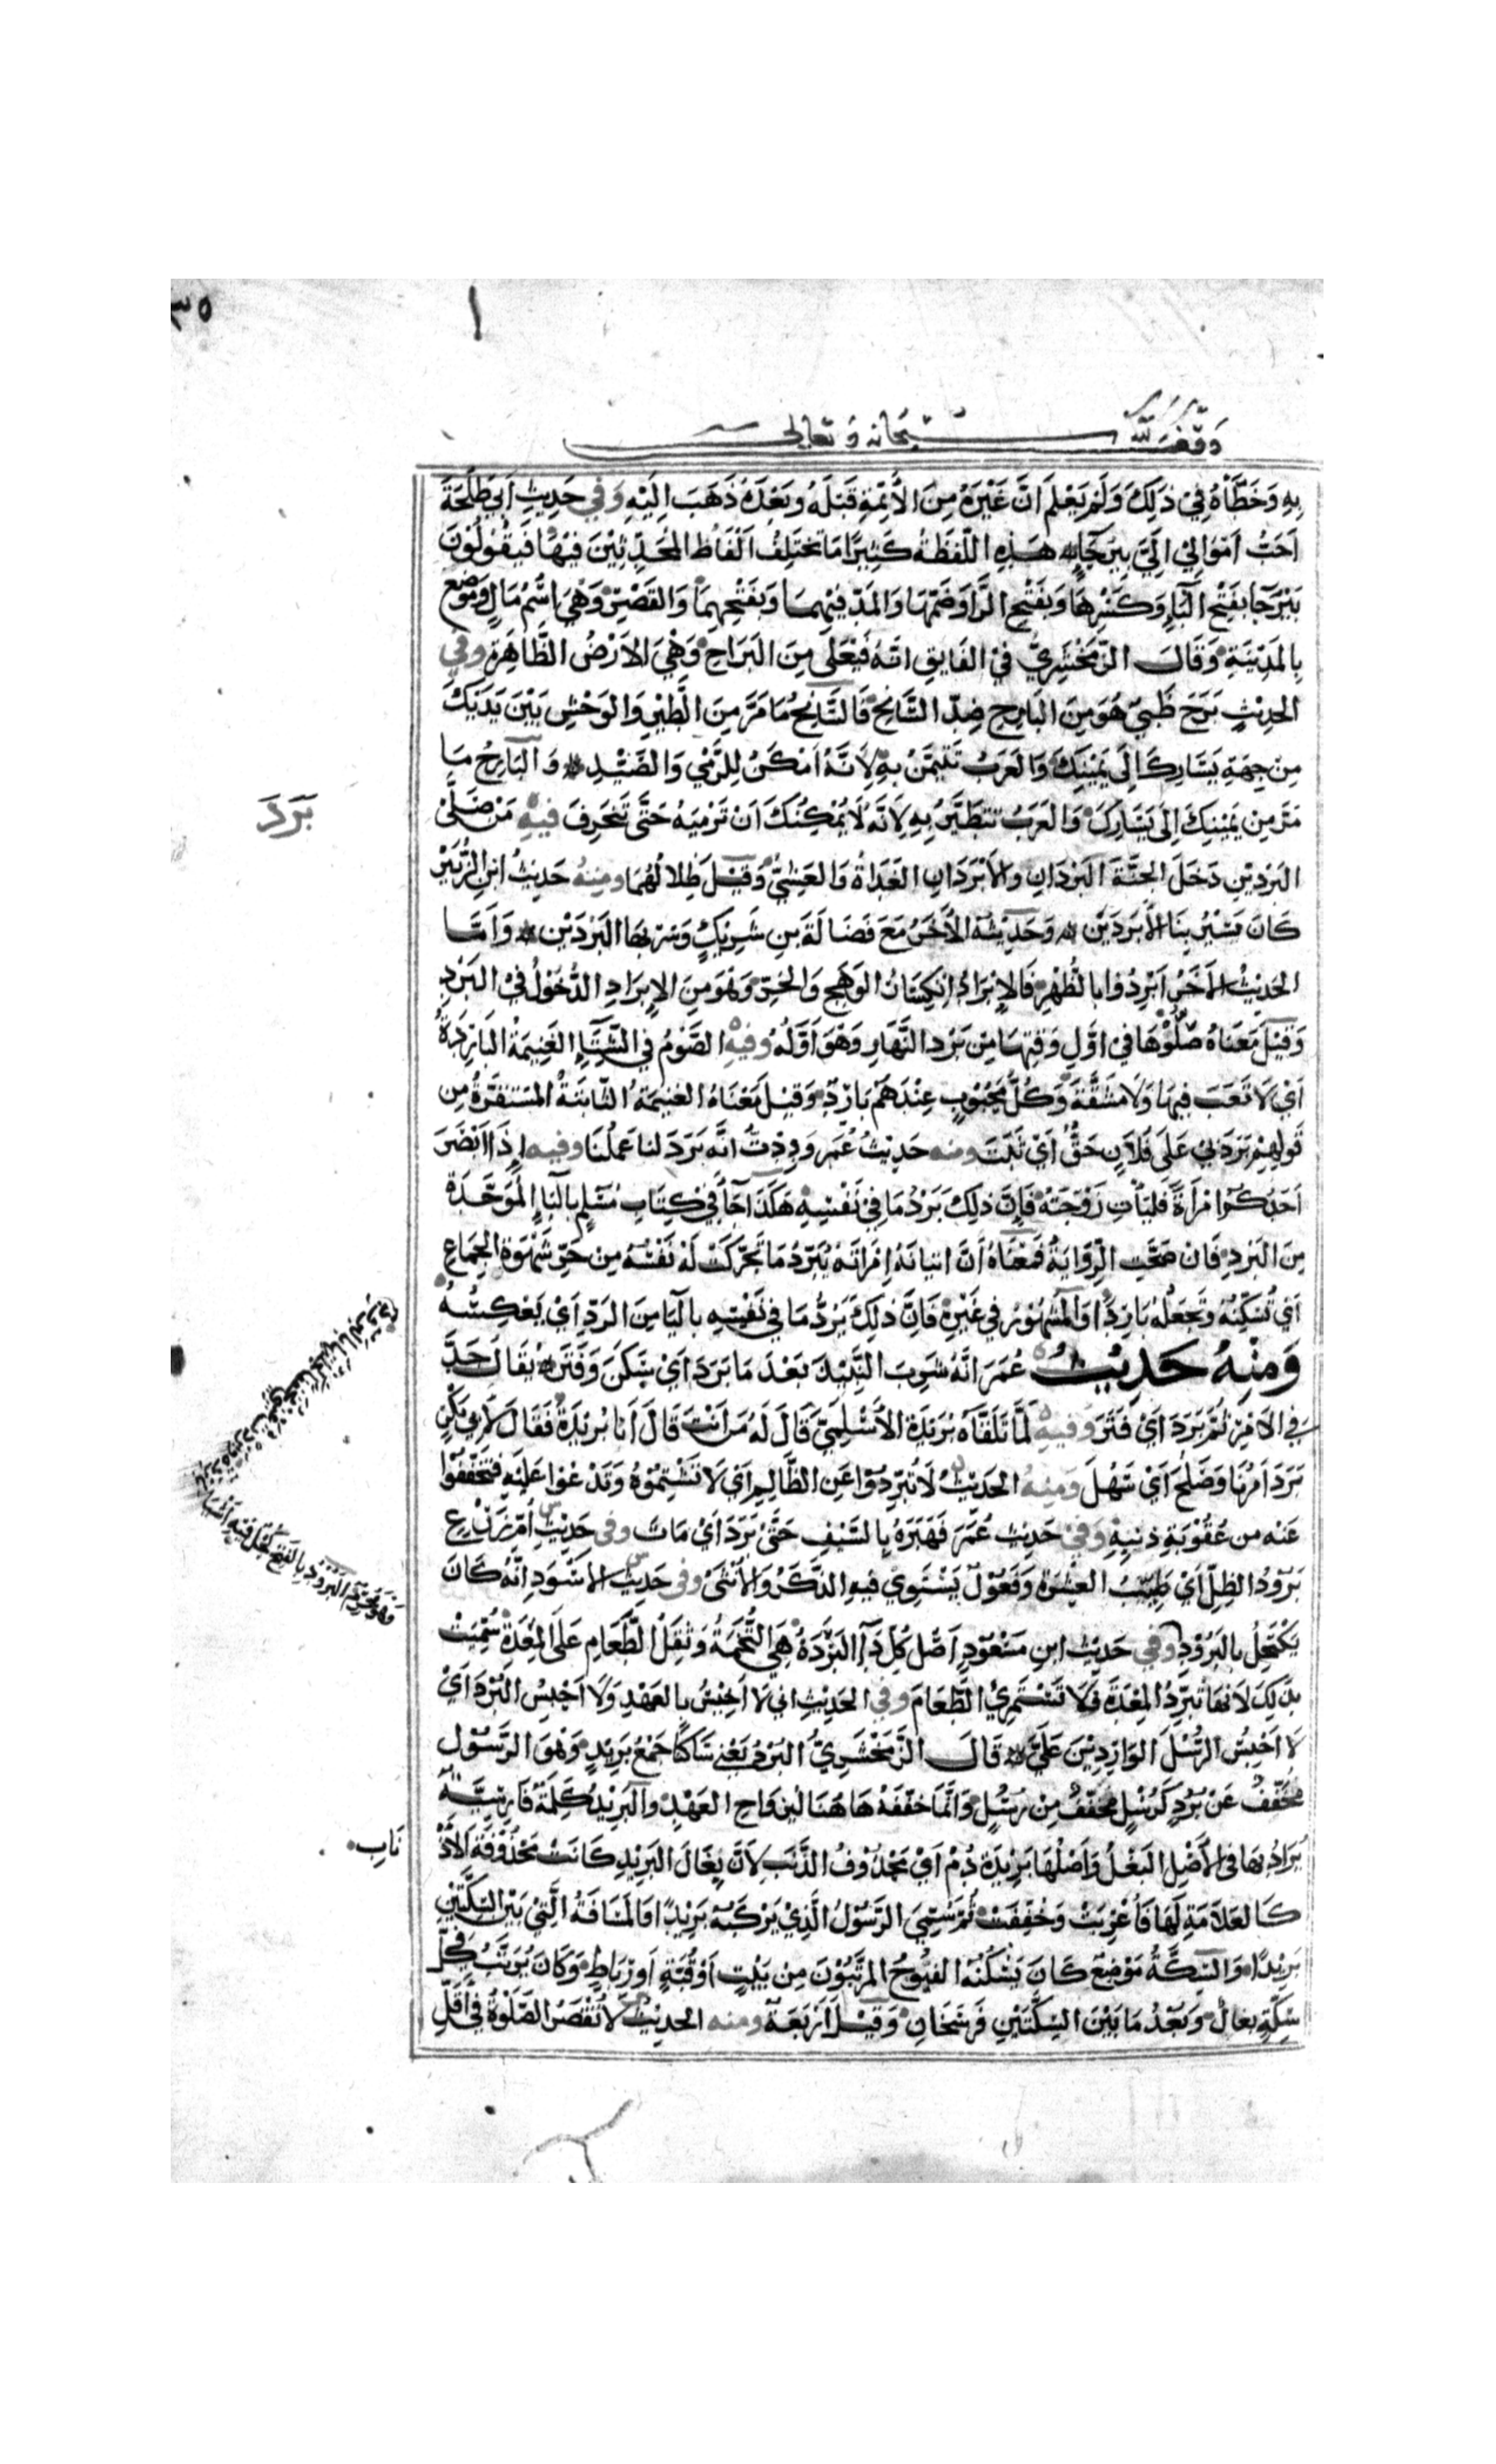 ٣٥
وقف لله سبحانه وتعالى
بِهِ وَخَطَّأْهُ فِيْ ذٰلِكَ وَلَمْ يَعْلَم اَنَّ غَيْرَهُ مِنَ الأَئِمَّةِ قَبْلَهُ وبَعْدَهُ ذَهَبَ اِلَيْهِ وَفِي حَدِيثِ اَبِي طَلْحَةَ
اَحَبُّ اَمْوَالِيْ اِلَيَّ بِيرَحَآءٍ هٰذِهِ اللَّفْظَةُ كَثِيْرًا مَا تَخْتَلِفُ اَلْفَاظُ الْمُحَدِّثِيْنَ فِيْهَا فَيَقُوْلُوْنَ
بَيْرَحَا بِفَتْحِ الْبَآءِ وَكَسْرِهَا وَبِفَتْحِ الرَّا وَضَمِّهَا وَالمَدِّ فِيْهِمَا وَبِفَتْحِهِمَا وَالقَصْرِ وَهْيَ اسْمُ مَالٍ وَمَوْضِعٍ
بِالمَدِيْنَةِ وَقَالَ الزَّمَخْشَرِيُّ فِي الفَايِقِ اِنَّهُ فَيْعَلَى مِنَ البَرَاحِ وَهْيَ الاَرْضُ الظَّاهِرَة وفي
الحَدِيْثِ بَرَحَ ظَبْيٌ هُوَ مِنَ البَارِحِ ضِدِّ السَّانِحِ فَالسَّانِحُ مَا مَرَّ مِنَ الطَّيْرِ وَالْوَحْشِ بَيْنَ يَدَيْكَ
مِن جِهَةِ يَسَارِكَ اِلَى يَمِيْنِكَ وَالعَرَبُ تَتَيَمَّنُ بِهِ لِاَنَّهُ اَمْكَنُ لِلرَّمْيِ وَالصَّيْدِ وَالبَارِحُ مَا
مَرَّ مِن يَمِيْنِكَ اِلى يَسَارِكَ وَالعَرَبُ تَتَطَيَّرُ بِهِ لِاَنَّهُ لَا يُمْكِنُكَ اَنْ تَرْمِيَهُ حَتَّى تَنْحَرِفَ فيهِ مَنْ صَلَّى
بَرَدَ
البَرْدَيْنِ دَخَلَ الجَنَّةَ البَرْدَانِ والاَبْرَدَانِ الغَدَاةُ وَالعَشِيُّ وَقِيْلَ ظِلَالُهُمَا ومنهُ حَدِيْثُ ابْنِ الزُّبَيْرِ
كَانَ يَسِيْرُ بِنَا الأَبْرَدَيْنِ وَحَدِيْثُهُ الأَخَرُ مَعَ فَضَالَةَ بنِ شَرِيْكٍ وَسِرْ بِهَا البَرْدَيْنِ وَاَمَّا
الحَدِيْثُ الأَخَرُ اَبْرِدُوا بِالظُّهْرِ فَالاِبْرَادُ انْكِسَارُ الوَهَجِ وَالحَرِّ وَهُوَ مِنَ الاِبْرَادِ الدُّخُوْلُ فِي البَرْدِ
وَقِيْلَ مَعْنَاهُ صَلُّوْهَا فِي اوَّلِ وَقْتِهَا مِنْ بَرْدِ النَّهَارِ وَهْوَ اَوَّلُهُ وفيهِ الصَّوْمُ فِي الشِّتَآءِ الغَنِيْمَةُ البَارِدَةُ
اَيْ لَا تَعَبَ فِيهَا وَلَا مَشَقَّةَ وَكُلُّ مَحْبُوْبٍ عِنْدَهُمْ بَارِدٌ وَقِيْلَ مَعْنَاهُ الغَنِيْمَةُ الثَّابِتَةُ المُسْتَقِرَّةُ مِن
قَوْلِهِمْ بَرَدَ لِيْ عَلَى فُلَانٍ حَقٌّ اَيْ ثَبَتَ ومنه حَدِيْثُ عُمَر وَدِدْتُ اَنَّهُ بَرَدَ لَنا عَمَلُنَا وفيه اِذَا اَبْصَرَ
اَحَدُكُمُ امْرَأَةً فَلْيَأْتِ زَوْجَتَهُ فَإِنَّ ذٰلِكَ بَرْدُ مَا فِيْ نَفْسِهِ هٰكَذَا جَآءَ فِيْ كِتَابِ مُسْلِمٍ بِالْبَآءِ الْمُوَحَّدَةِ
مِنَ البَرْدِ فَاِنْ صَحَّتِ الرِّوَايَةُ فَمَعْنَاهُ اَنَّ اِتْيَانَهُ اِمْرَأَتَهُ يُبَرِّدُ مَا تَحَرَّكَتْ لَهُ نَفْسُهُ مِن حَرِّ شَهْوَةِ الجِمَاعِ
اَيْ تُسَكِّنُهُ وتَجْعَلُهُ بَارِدًا وَالمَشْهُوْرُ فِي غَيْرِهِ فَاِنَّ ذٰلِكَ يَرُدُّ مَا فِي نَفْسِهِ بِالْيَا مِنَ الرَدِّ اَيْ يَعْكِسُهُ
وَمِنْهُ حَدِيْثُ عُمَرَ اَنَّهُ شَرِبَ النَّبِيْذَ بَعْدَ مَا بَرَدَ اَيْ سَكَنَ وَفَتَرَ يُقَالُ جَدَّ
فِي الاَمْرِ ثُمَّ بَرَدَ اَيْ فَتَرَ وَفيهِ لَمَّا تَلَقَّاهُ بُرَيْدَةُ الأَسْلَمِيُّ قَالَ لَهُ مَنْ اَنْتَ قَالَ اَنَا بُرَيْدَةُ فَقَالَ لأَبِي بَكْرٍ
بَرَدَ اَمْرُنَا وَصَلُحَ اَيْ سَهُلَ وَمِنهُ الحَدِيْثُ لَا تُبَرِّدُوْا عَنِ الظَّالِمِ اَيْ لَا تَشْتِمُوْهُ وَتَدْعُوا عَلَيْهِ فَتُخَفِّفُوا
عَنْهُ من عُقُوْبَةِ ذَنْبِهِ وَفِيْ حَدِيْثِ عُمَرَ فَهَبَرَهُ بِالسَّيْفِ حَتَّى بَرَدَ اَيْ مَاتَ وفي حَدِيْثِ اُمِّ زَرْعٍ
بَرُوْدُ الظِّلِّ اَيْ طَيِّبُ العِشْرَةِ وَفَعُوْلٌ يَسْتَوِيْ فِيهِ الذَّكَرُ وَالأُنْثَى وفي حَدِيثِ الاَسْوَدِ اَنَّهُ كَانَ
يَكْتَحِلُ بِالبَرُوْدِ وفي حَدِيْثِ ابنِ مَسْعُوْدٍ اَصْلُ كُلِّ دَآءٍ البَرَدَةُ هِيَ التُّخَمَةُ وَثِقَلُ الطَّعَامِ عَلَى المِعْدَةِ سُمِّيَتْ
بِذٰلِكَ لاَنَّهَا تُبَرِّدُ المِعْدَةَ فَلَا تَسْتَمْرِئُ الطَّعَامَ وفي الحَدِيْثِ اني لَا اَخِيْسُ بِالعَهْدِ وَلَا اَحْبِسُ البُرْدَ اَيْ
لا اَحْبِسُ الرُّسُلَ الوَارِدِيْنَ عَلَيَّ قَالَ الزَّمَخْشَرِيُّ البُرْدُ يَعْنِي سَاكِنًا جَمْعُ بَرِيْدٍ وَهْوَ الرَّسُوْلُ
مُخَفَّفٌ عَنْ بُرُدٍ كَرُسْلٍ مُخَفَّفٌ مِن رُسُلٍ وَاِنَّمَا خَفَّفَهُ هَاهُنَا لِيُزَاوِجَ العَهْدِ والبَرِيْدُ كَلِمَةٌ فَارِسِيَّةٌ
يُرَادُ بِهَا فِي الأَصْلِ البَغْلُ وَاَصْلُهَا بَرِيْدَه دُمْ اَيْ مَحْذُوْفُ الذَّنَبِ لاَنَّ بِغَالَ البَرِيْدِ كَانَتْ مَحْذُوْفَةَ الأَذْ
نَابِ
كَالعَلَامَةِ لَهَا فَأُعْرِبَتْ وَخُفِّفَتْ ثُمَّ سُمِّيَ الرَّسُوْلُ الَّذِيْ يَرْكَبُهُ بَرِيْدًا وَالمَسَافَةُ الَّتِيْ بَيْنَ السِّكَّتَيْنِ
بَرِيْدًا وَالسِّكَّةُ مَوْضِعٌ كَانَ يَسْكُنُهُ الفُيُوْجُ المُرَتَّبُوْنَ مِن بَيْتٍ اَوْ قُبَّةٍ اَوْ رِبَاطٍ وَكَانَ يُرَتَّبُ فِي كُلِّ
سِكَّةٍ بِغَالٌ وَبُعْدُ مَا بَيْنَ السِّكَّتَيْنِ فَرْسَخَانِ وَقِيْلَ اَرْبَعَةٌ ومنه الحَدِيْثُ لَا تُقْصَرُ الصَّلٰوةُ فِي اَقَلَّ